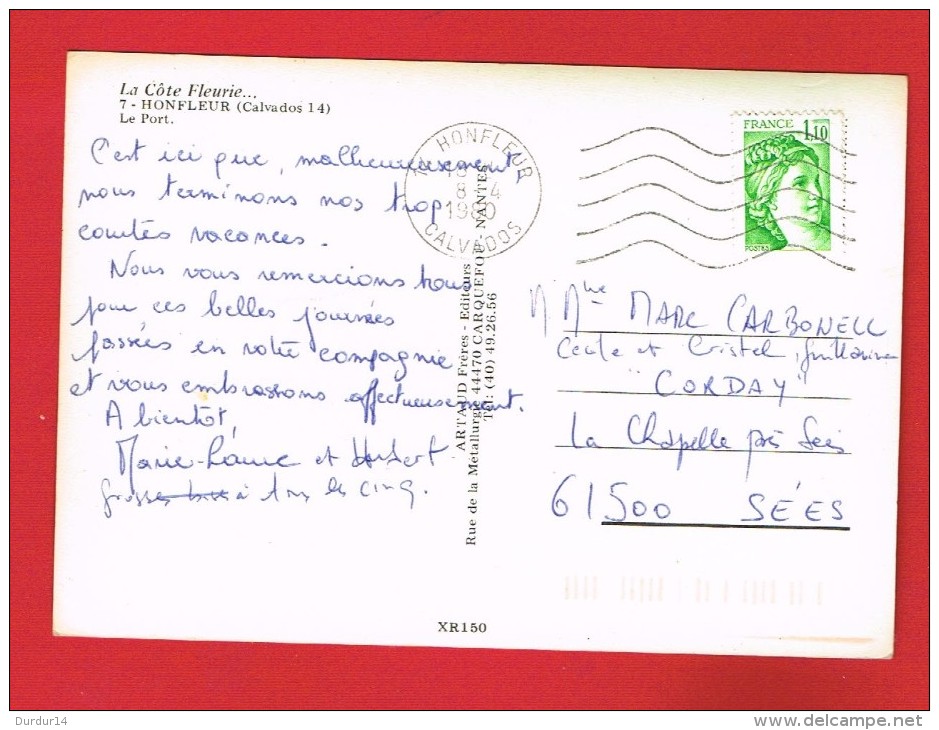 La Côte Fleurie...
7 - HONFLEUR (Calvados 14)
Le Port.
C'est ici que, malheureusement,
nous terminons nos trop
courtes vacances.
Nous vous remercions tous
pour ces belles journées
passées en votre compagnie
et vous embrassons affectueusement.
A bientôt,
Marie-Laure et Hubert
grosses bises à tous les cinq.
HONFLEUR
8-4
1980
CALVADOS
ARTAUD Frères - Editeurs
Rue de la Métallurgie 44470 CARQUEFOU NANTES
Tél: (40) 49.26.56
FRANCE 1,10
POSTES
M Mme MARC CARBONELL
Cécile et Cristel, Guillaume
"CORDAY"
La Chapelle près Sées
61500 SÉES
XR150
Durdur14
www.delcampe.net